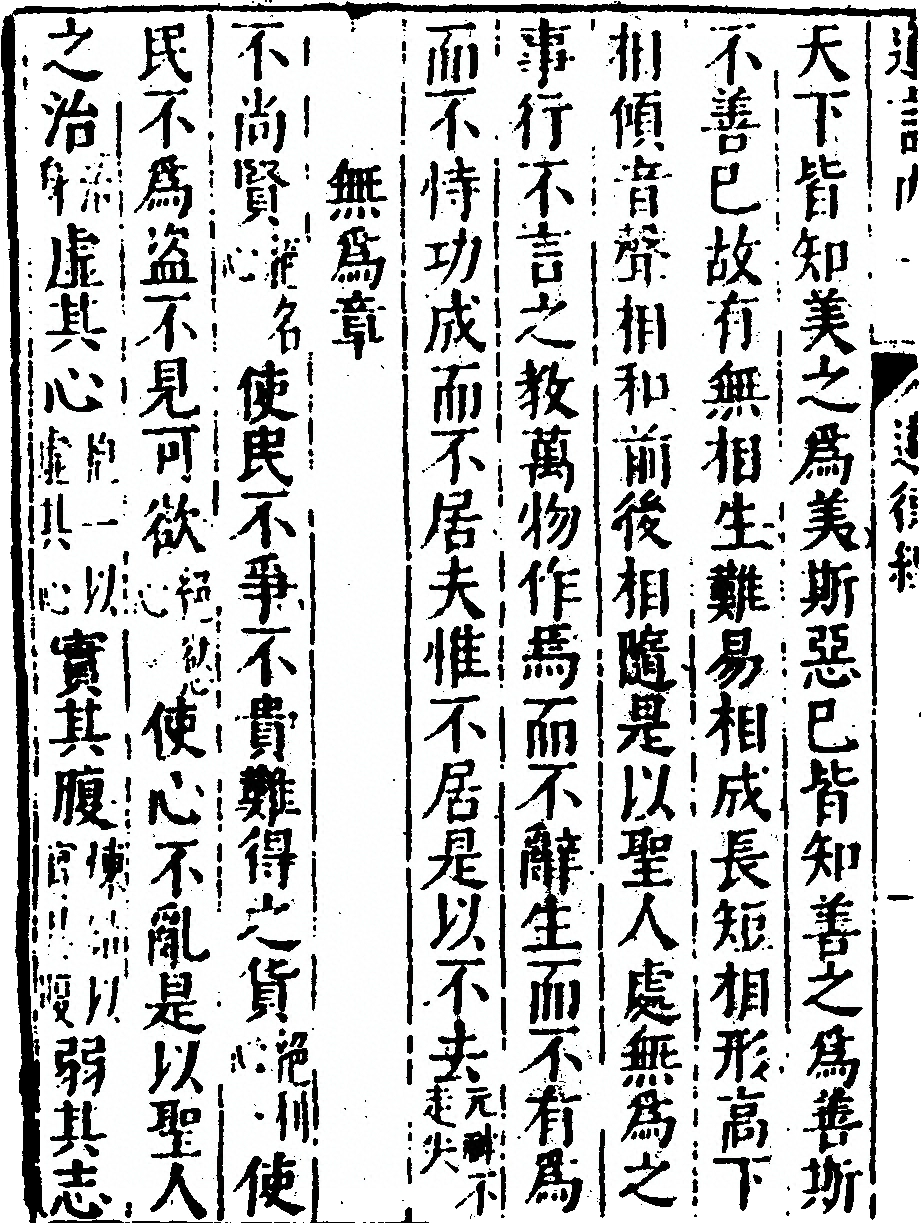 天下皆知美之爲美斯惡已皆知善之爲善斯
不善已故有無相生難易相成長短相形高下
相傾音聲相和前後相隨是以聖人處無爲之
事行不言之教萬物作焉而不辭生而不有爲
而不恃功成而不居夫惟不居是以不去元神不走失
無爲章
不尚賢名心使民不爭不貴難得之貨絕利心使
民不為盜不見可欲絕慾心使心不亂是以聖人
之治治身虛其心抱一以虛其心實其腹以腹弱其志